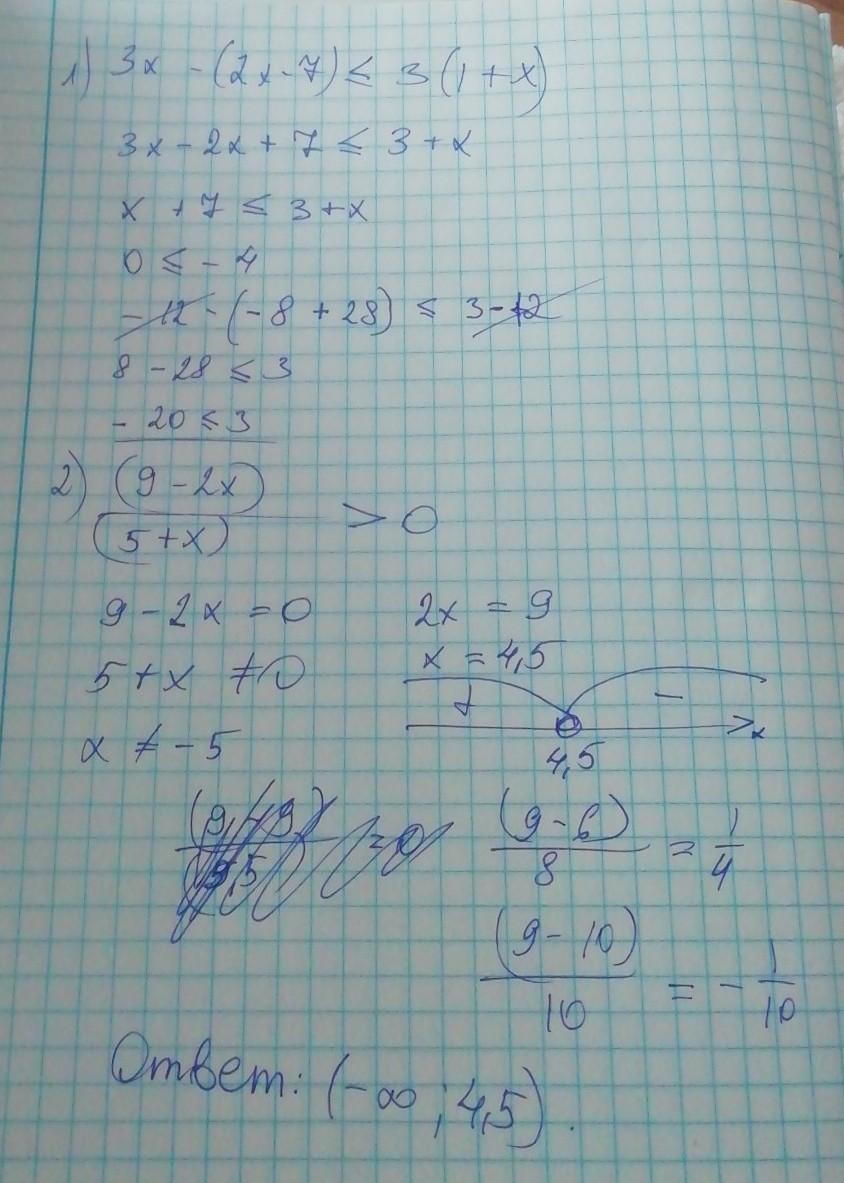 1) 3x - (2x - 7) ≤ 3 (1 + x)
3x - 2x + 7 ≤ 3 + x
x + 7 ≤ 3 + x
0 ≤ - 4
- 12 - (- 8 + 28) ≤ 3 - 12
8 - 28 ≤ 3
- 20 ≤ 3
2) (9 - 2x)
(5 + x)
> 0
9 - 2x = 0
2x = 9
5 + x ≠ 0
x = 4,5
+ -
x
x ≠ - 5
4,5
(9 - 6)
8
= 1
4
(9 - 10)
10
= - 1
10
Ответ: (-∞ ; 4,5) .